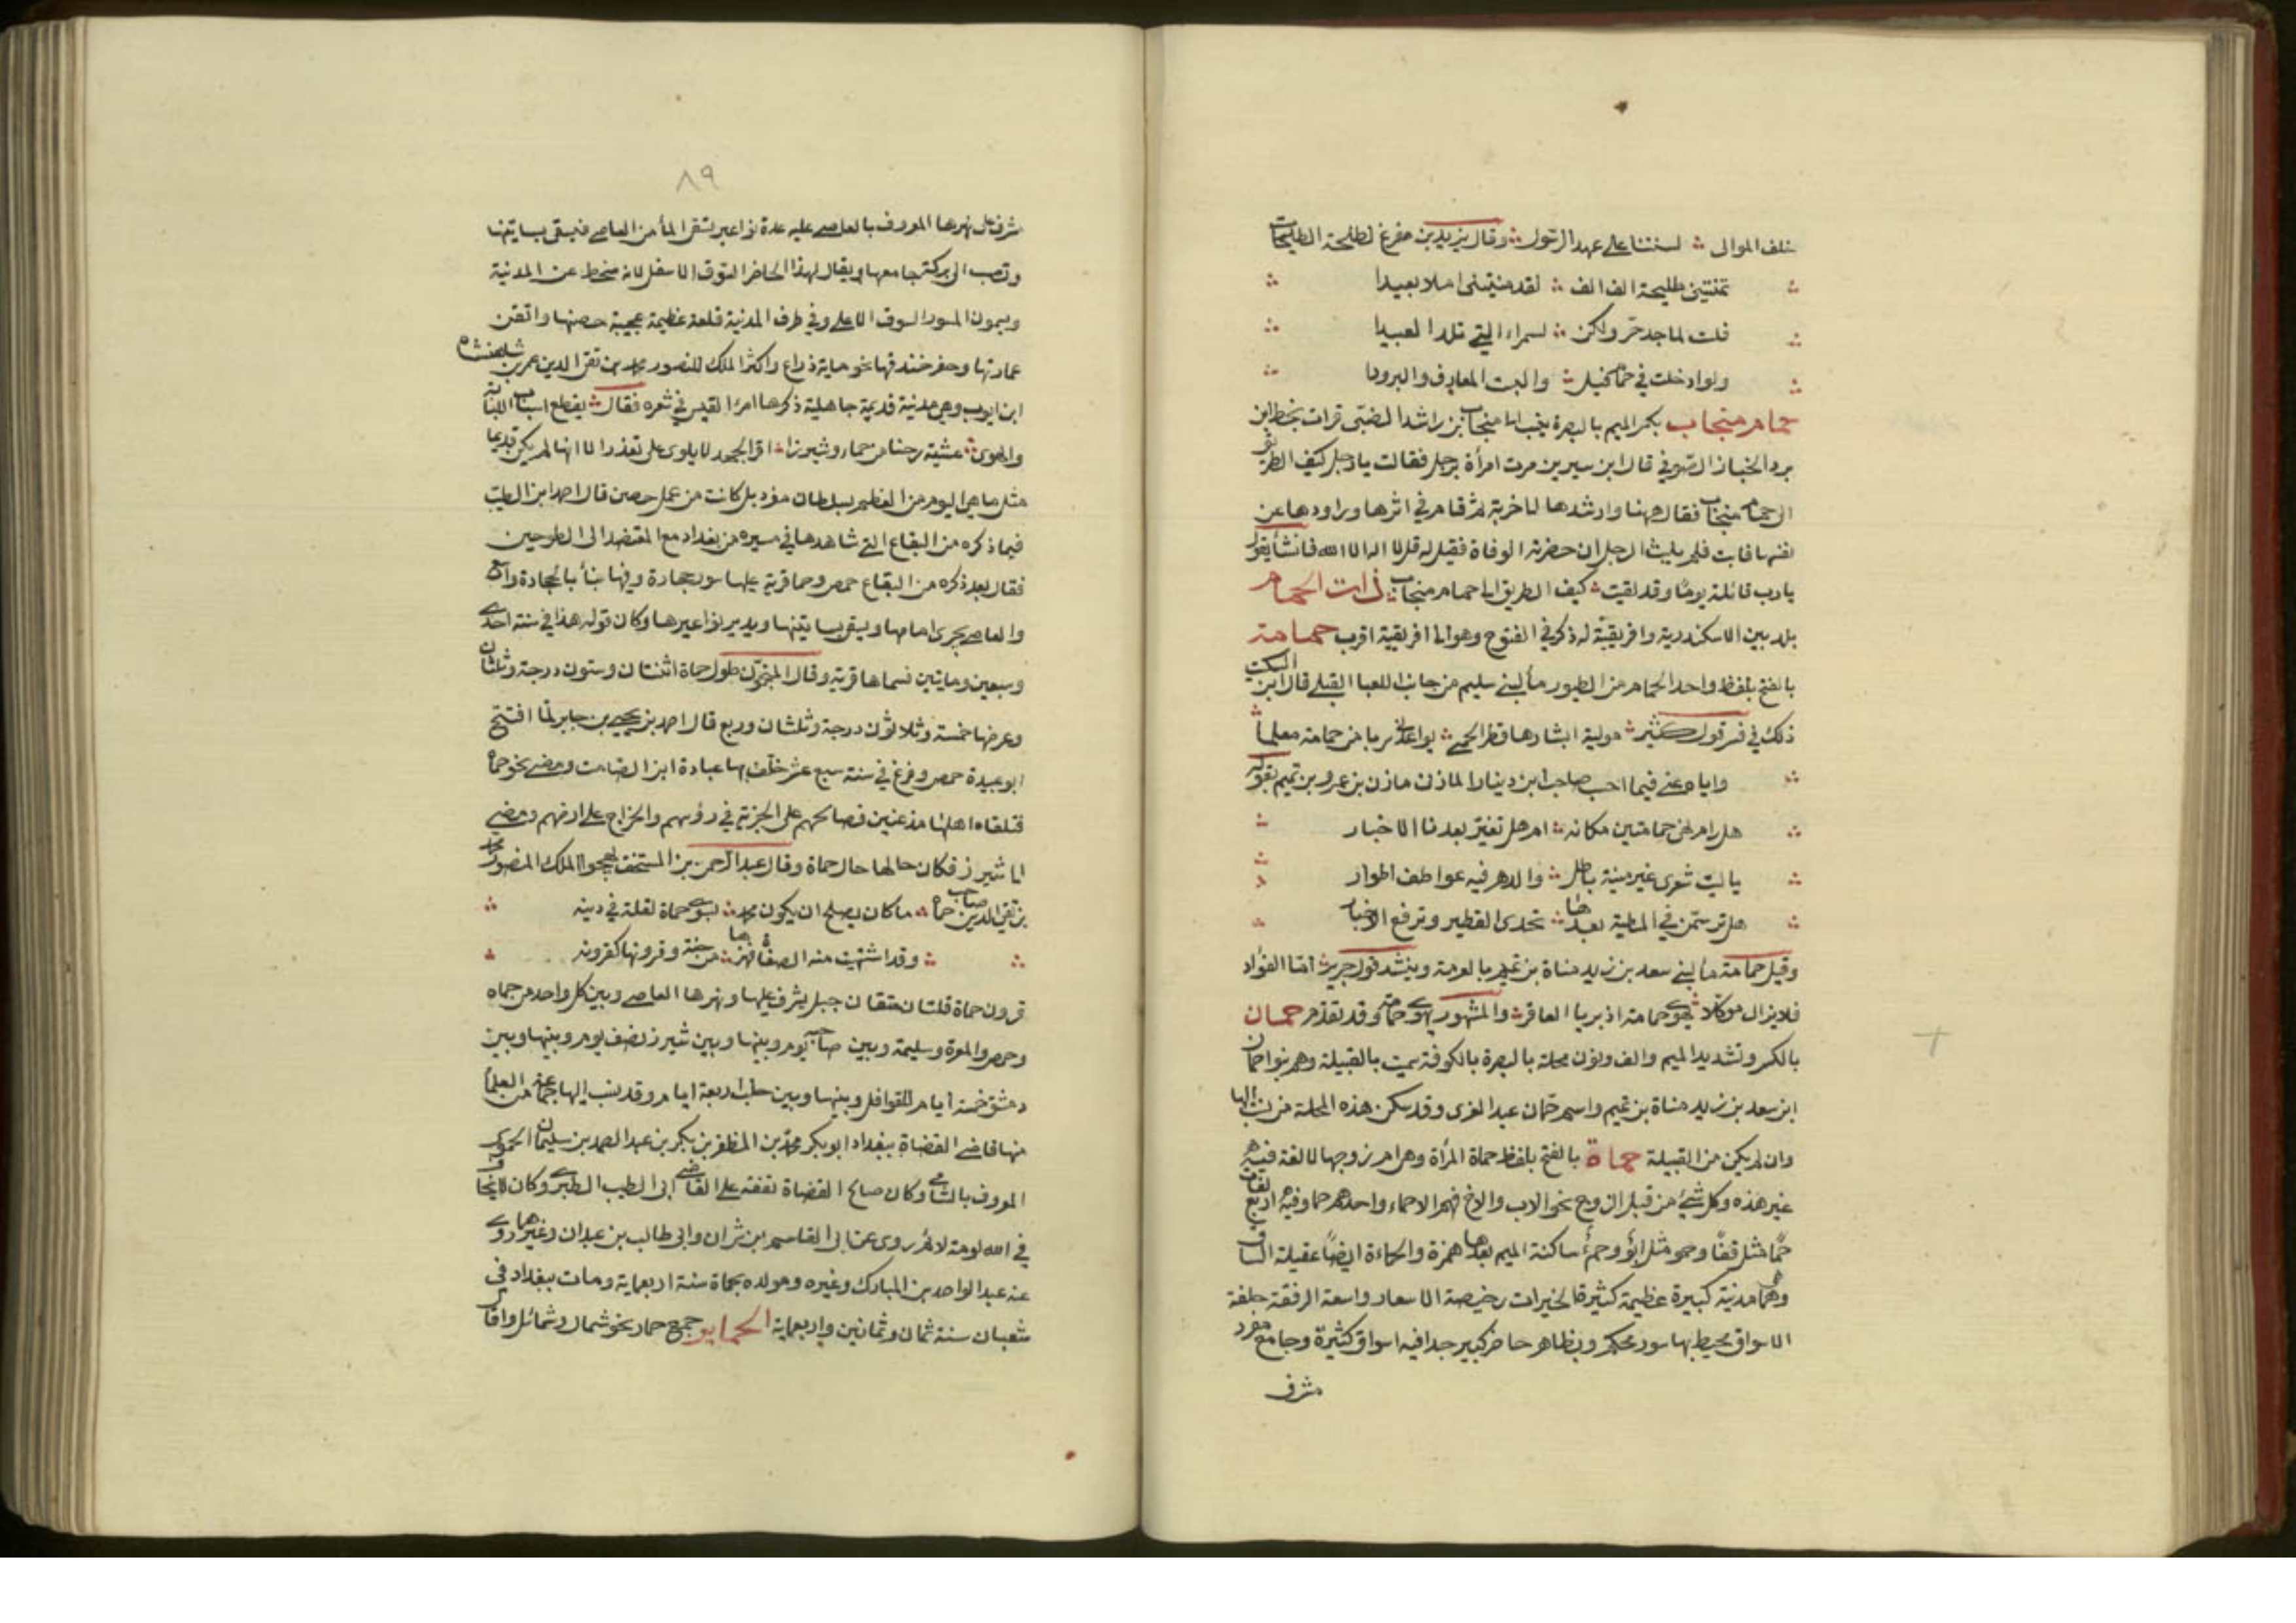 خلف الموالى لسنتنا على عهد الرسول وقال يزيد بن مفرغ لطلحة الطلحات
تمنيني طليحة الف الف لقد منيتنى املا بعيدا
فلست لماجد حر ولكن لسمراء التي تلد العبيدا
ولو ادخلت في حمام خيل والبست المعارف والبرودا
حمام منجاب بكسر الميم بالبصرة ينسب الى منجاب بن راشد الضبى قرات بخط ابن
برد الخباز الصوفي قال ابن سيرين مرت امرأة برجل فقالت يا رجل كيف الطريق
الى حمام منجاب فقال ههنا وارشدها الى خربة ثم قام في اثرها وراودها عن
نفسها فابت فلم يلبث الرجل ان حضرته الوفاة فقيل له قل لا اله الا الله فانشأ يقول
يا رب قائلة يوما وقد لقيت كيف الطريق الى حمام منجاب ذات الحمام
بلد بين الاسكندرية وافريقية له ذكر في الفتوح وهو الى افريقية اقرب حمامة
بالفتح بلفظ واحد الحمام من الطيور ماء لبني سليم من جانب اللعبا القبلي قال ابن السكيت
ذلك في فسر قول كثير مولية ايسارها قطر الحمى تواعدن شربا من حمامة معلما
واياه عنى فيما احسب صاحب ابن دينار المازن مازن بن عمرو بن تميم بقوله
هل رام نهى حمامتين مكانه ام هل تغير بعدنا الاخبار
يا ليت شعرى غير منية باطل والدهر فيه عواطف اطوار
هل ترسمن في المطية بعدها تحدى القطير وترفع الاخبار
وقيل حمامة ماء لبني سعد بن زيد مناة بن تميم بالعرمة وينشد قول جرير اما الفؤاد
فلا يزال موكلا بهوى حمامة اذ بريا العاقر والمشهور بهوى جمانة وقد تقدم حمان
بالكسر وتشديد الميم والف ونون محلة بالبصرة بالكوفة سميت بالقبيلة وهم بنو احمان
ابن سعد بن زيد مناة بن تميم واسم حمان عبد العزى وقد سكن هذه المحلة من نسب اليها
وان لم يكن من القبيلة حماة بالفتح بلفظ حماة المرأة وهى ام زوجها لا لغة فيه
غير هذه وكل شىء من قبل الزوج نحو الاب والاخ فهم الاحماء واحدهم حما وفيه اربع لغات
حمًا مثل قفًا وحمو مثل ابو وحمء ساكنة الميم بعدها همزة والحماة ايضا عقيلة الساق
وحماة مدينة كبيرة عظيمة كثيرة الخيرات رخيصة الاسعار واسعة الرفقة حلفة
الاسواق يحيط بها سور محكم وبظاهر حاضر كبير جدا فيه اسواق كثيرة وجامع مفرد
مشرف
٨٩
مشرف على نهرها المعروف بالعاصي عليه عدة نواعير تستقى الماء من العاصي فتسقى بساتينها
وتصب الى بركة جامعها ويقال لهذا الحاضر السوق الاسفل لانه منحط عن المدينة
ويسمون المسور السوق الاعلى وفي طرف المدينة قلعة عظيمة عجيبة حصنها واتقن
عمارتها وحفر خندقها نحو ماية ذراع واكثر الملك المنصور محمد بن تقى الدين عمر بن شاهنشاه
ابن ايوب وهى مدينة قديمة جاهلية ذكرها امرء القيس في شعره فقال يقطع اسباب اللبانة
والهوى عشية رحنا من حماه وشيزرا اقر الجهد لا يلوى على تعذرا الا انها لم يكن قديما
مثل ما هى اليوم من العظم بسلطان مفرد بل كانت من عمل حمص قال احمد ابن الطيب
فيما ذكره من البقاع التي شاهدها في مسيره من بغداد مع المعتضد الى الطواحين
فقال بعد ذكره من البقاع حمص وحما قرية عليها سور حجارة وفيها بناء بالحجارة واسع
والعاصي يجرى امامها ويسقى بساتينها ويدير نواعيرها وكان قوله هذا في سنة احدى
وسبعين ومايتين فسماها قرية وقال المنجمون طول حماة اثنتان وستون درجة وثلثان
وعرضها خمسة وثلاثون درجة وثلثان وربع قال احمد بن يحيى بن جابر لما افتتح
ابو عبيدة حمص وفرغ في سنة سبع عشر خلف بها عبادة ابن الصامت ومضى نحو حماة
فتلقاه اهلها مذعنين فصالحهم على الجزية في رؤسهم والخراج على ارضهم ومضى
الى شيزر فكان حالها حال حماة وقال عبد الرحمن بن المستخف يهجوا الملك المنصور محمد
بن تقي الدين صاحب حماة ما كان يصلح ان يكون محمد بسوى حماة لقلة في دينه
وقد اشتهيت منه الصفاة فهزها من جنة وقرونها كقرونه
قرون حماة قلتان متقان جبل يشرف عليها ونهرها العاصي وبين كل واحد من حماه
وحمص والمعرة وسليمة وبين صاحبه يوم وبينها وبين شيزر نصف يوم وبينها وبين
دمشق خمسة ايام للقوافل وبينها وبين حلب اربعة ايام وقد نسب اليها جماعة من العلماء
منها قاضى القضاة ببغداد ابو بكر محمد بن المظفر بن بكر بن عبد الصمد بن سليمان الحموى
المعروف بالشامى وكان صالح القضاة تفقه على القاضى ابى الطيب الطبرى وكان لا يخاف
في الله لومة لائم روى عن ابى القاسم بن بشران وابى طالب بن عيلان وغيرهما روى
عنه عبد الواحد بن المبارك وغيره ومولده بحماة سنة اربعماية ومات ببغداد فى
شعبان سنة ثمان وثمانين واربعماية الحمايو جمع حمار نحو شمال وشمائل وافال